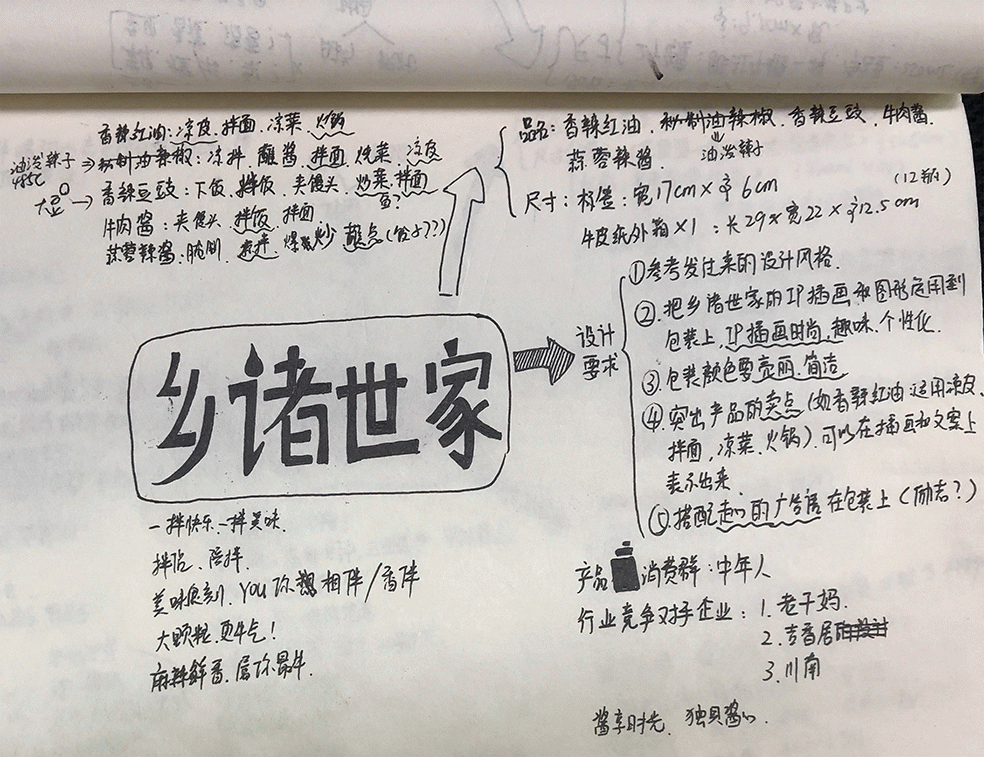 香辣红油:凉皮、拌面、凉菜、火锅
油泼辣子
485℃
秘制油辣椒:凉拌、蘸酱、拌面、烧菜、凉皮
大豆
香辣豆豉:下饭、拌饭、夹馒头、炒菜、拌面
鱼?
牛肉酱:夹馒头、拌饭、拌面
蒜蓉辣酱、爆炒
品名:香辣红油、秘制油辣椒、香辣豆豉、牛肉酱、
蒜蓉辣酱
油泼辣子
尺寸:标签:宽17cm×高6cm
(12瓶)
牛皮纸外箱×1:长29×宽22×高12.5cm
乡诸世家
设计
要求
①参考发过来的设计风格.
②.把乡诸世家的IP插画和图形应用到
包装上,IP插画时尚、趣味、个性化.
③.包装颜色要亮丽、简洁
④.突出产品的卖点(如香辣红油适用凉皮、
拌面,凉菜、火锅).可以在插画和文案上
表示出来.
⑤.搭配走心的广告语在包装上(励志?)
一拌快乐、一拌美味.
拌侣、陪拌.
美味食刻、YOU你想相伴/香伴
大颗粒,更牛气!
麻辣鲜香,属你最牛.
产品消费群:中年人
行业竞争对手企业:1.老干妈.
2.吉香居
3.川南
酱享时光、独具酱心.